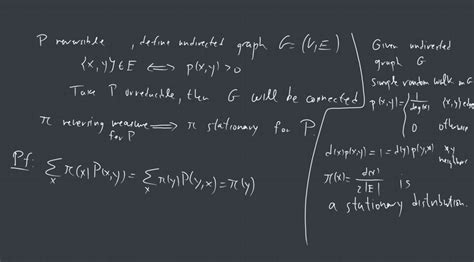 P reversible, define undirected graph G=(V,E)
{x,y}∈E ⟺ p(x,y)>0
Take P irreducible, then G will be connected
π reversing measure for P ⟹ π stationary for P.
Pf: ∑_x π(x)P(x,y) = ∑_x π(y)P(y,x) = π(y)
Given undirected
graph G
simple random walk on G
p(x,y)={ 1/deg(x) {x,y} edge
0 otherwise
d(x)p(x,y)=1=d(y)p(y,x) x,y neighbor
π(x)= d(x)/2|E| is
a stationary distribution.